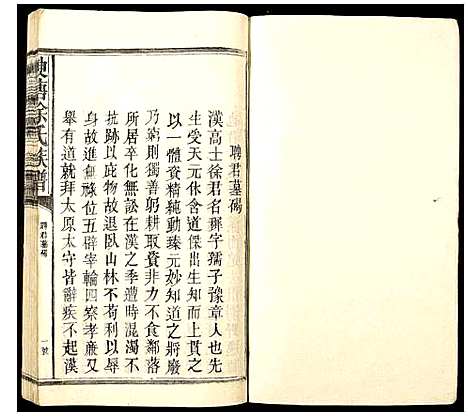 聘君墓碣
漢高士徐君名穉字孺子豫章人也先
生受天元休含道傑出生知上貫之
以一體資精純動臻元妙知道之將廢
乃窮則獨善躬耕取資非力不食鄰落
居卒化無訟在漢之季遭時混濁不
抗跡以庇物故退臥山林不苟利以辱
身故進無祿位五辟宰輪四察孝廉又
舉有道就拜太原太守皆辭疾不起漢
徐氏族譜
聘君墓碣
一號